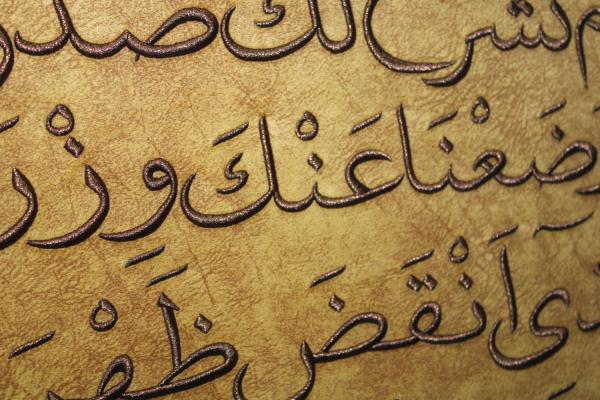 نشرح لك صد
ضَعْنَا عَنْكَ وِزْرَ
ذِي أَنْقَضَ ظَهْرَ